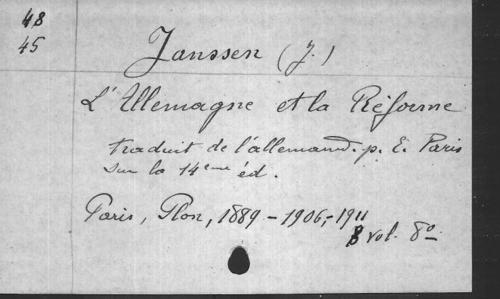 48
45
Janssen (J.)
L'Allemagne et la Réforme
traduit de l'allemand. p. E. Paris
sur la 14eme éd.
Paris, Plon, 1889-1906,-1911
8 vol. 8º